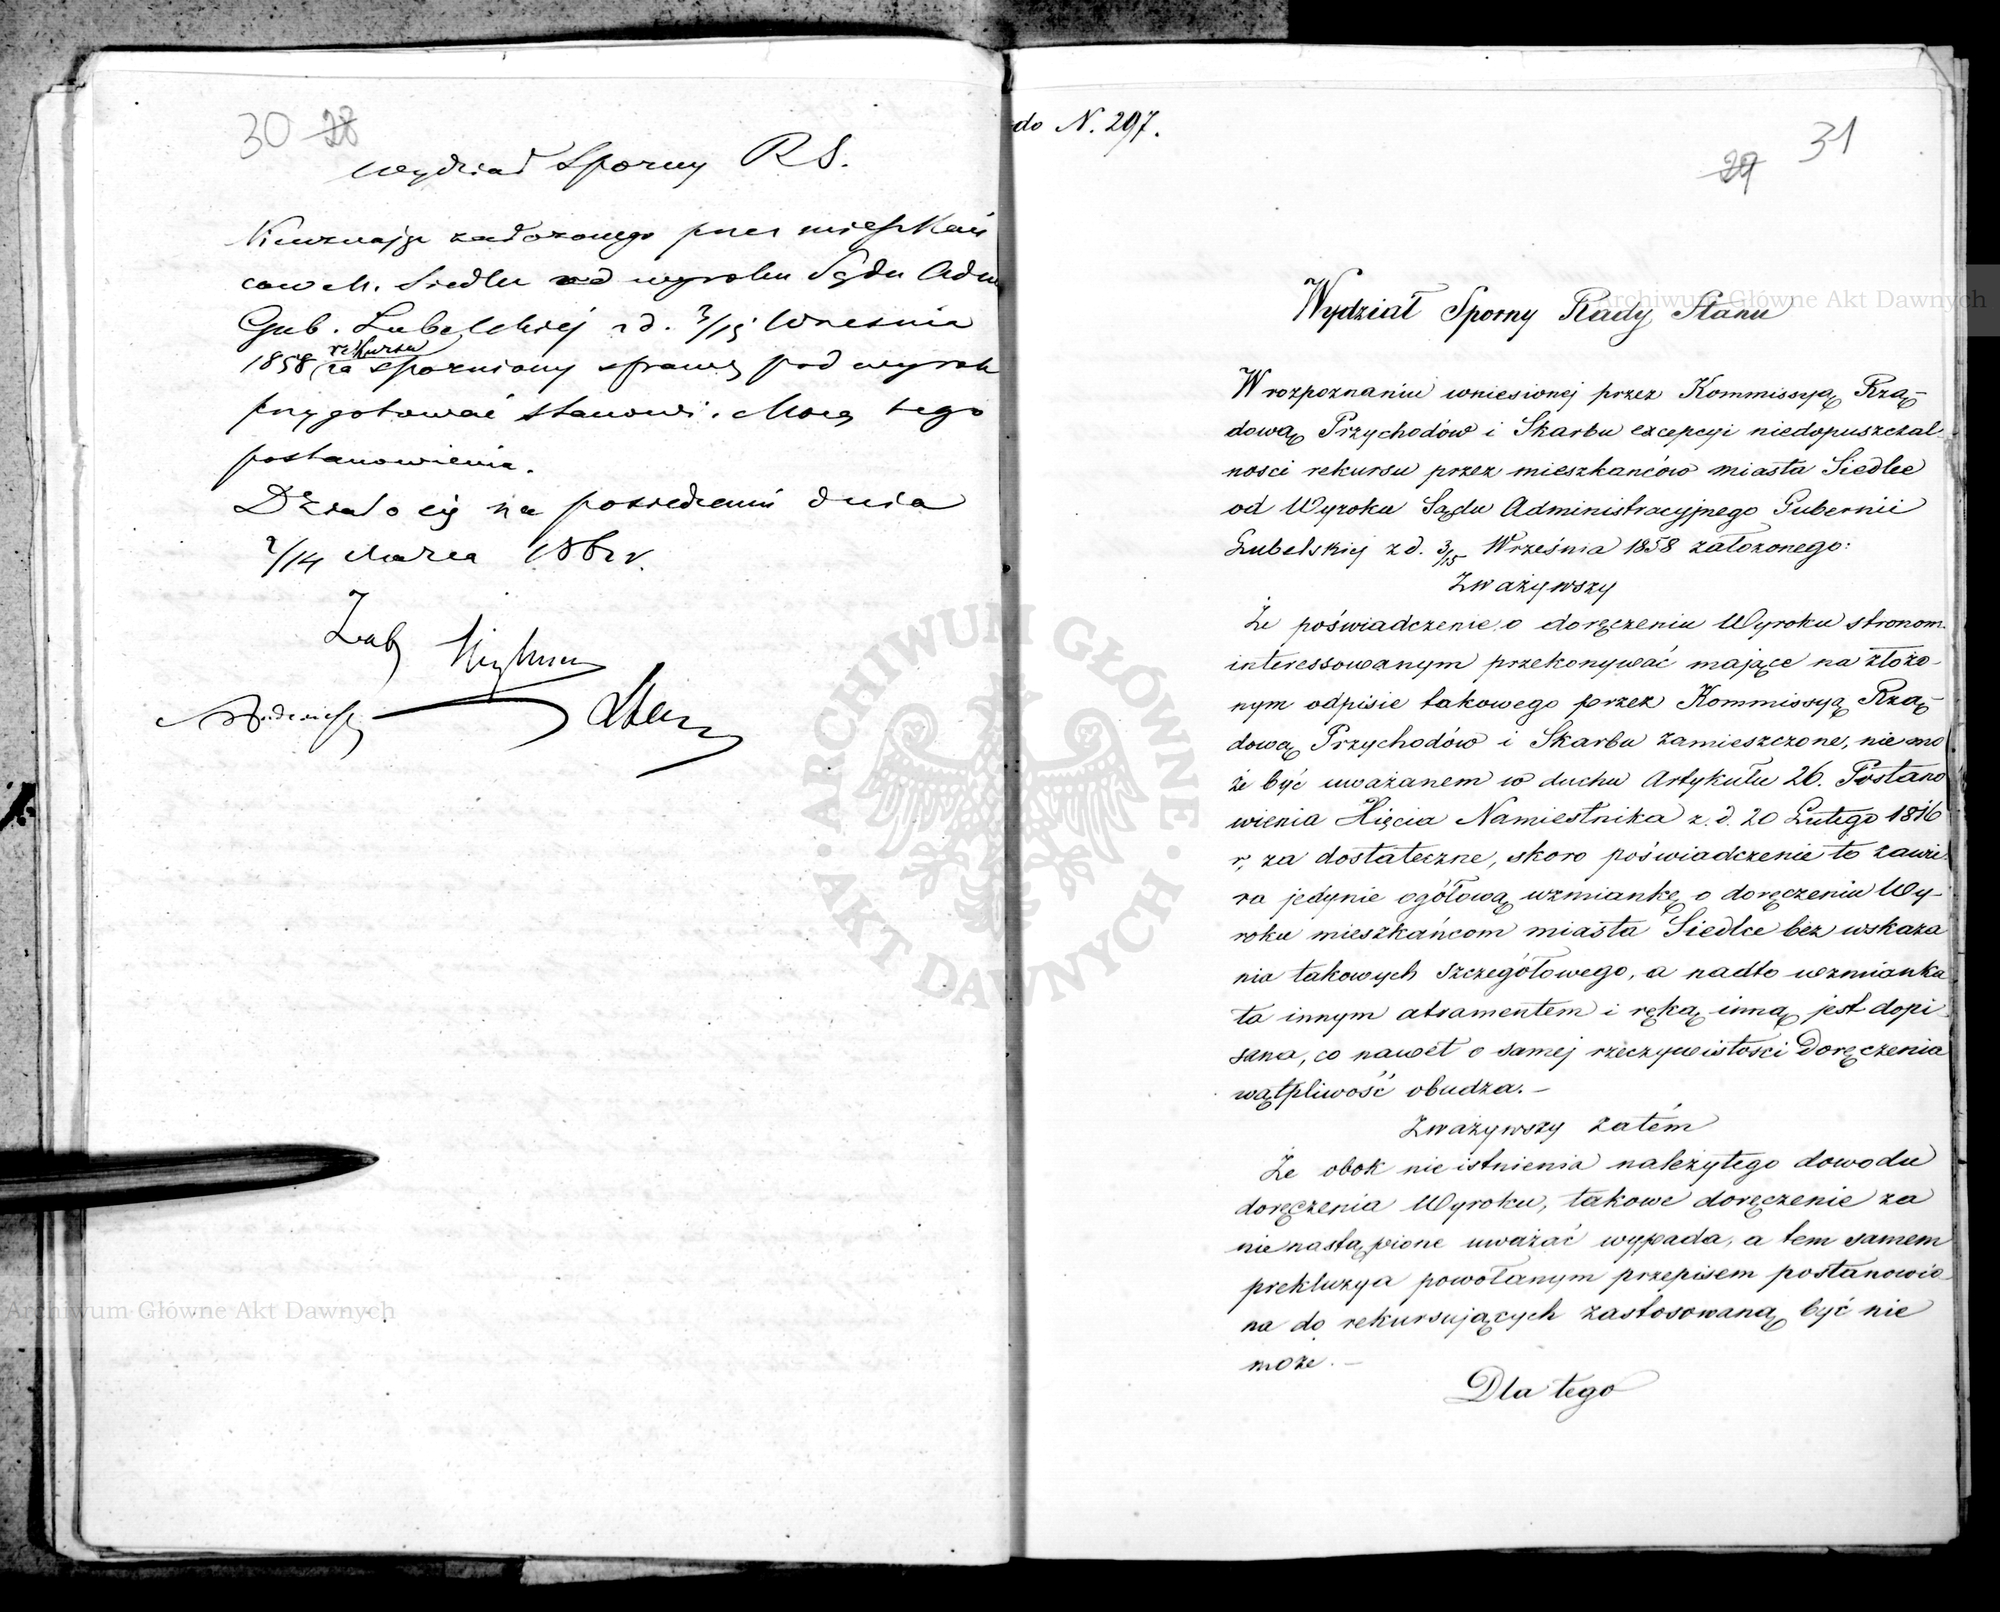 30 28
Wydział Sporny R S.
Nieuznając założonego przez mieszkań
ców M. Siedlec od wyroku Sądu Adm
Gub. Lubelskiej z d. 3/15 Września
1858 rekursu za spóźniony sprawę pod wyrok
przygotować stanowi. Mocą tego
postanowienia.
Działo się na posiedzeniu dnia
2/14 Marca 186 r.
do N. 297.
29 31
Wydział Sporny Rady Stanu
W rozpoznaniu wniesionej przez Kommissyą Rzą-
dową Przychodów i Skarbu excepcyi niedopuszczal-
ności rekursu przez mieszkańców miasta Siedlce
od Wyroku Sądu Administracyjnego Gubernii
Lubelskiej z d. 3/15 Września 1858 założonego:
Zważywszy
Że poświadczenie o doręczeniu Wyroku stronom
interessowanym przekonywać mające na złożo-
nym odpisie takowego przez Kommissyą Rzą-
dową Przychodów i Skarbu zamieszczone, nie mo
że być uważanem w duchu Artykułu 26. Postano
wienia Xięcia Namiestnika z. d. 20 Lutego 1816
r, za dostateczne, skoro poświadczenie to zawie-
ra jedynie ogółową wzmiankę o doręczeniu Wy-
roku mieszkańcom miasta Siedlce bez wskaza
nia takowych szczegółowego, a nadto wzmianka
ta innym atramentem i ręką inną jest dopi
sana, co nawet o samej rzeczywistości Doręczenia
wątpliwość obudza. –
Zważywszy zatém
Że obok nieistnienia należytego dowodu
doręczenia Wyroku, takowe doręczenie za
nienastąpione uważać wypada, a tem samem
prekluzya powołanym przepisem postanowio-
na do rekursujących zastosowaną być nie
może. –
Dla tego
ARCHIWUM GŁÓWNE AKT DAWNYCH
Archiwum Główne Akt Dawnych
Archiwum Główne Akt Dawnych